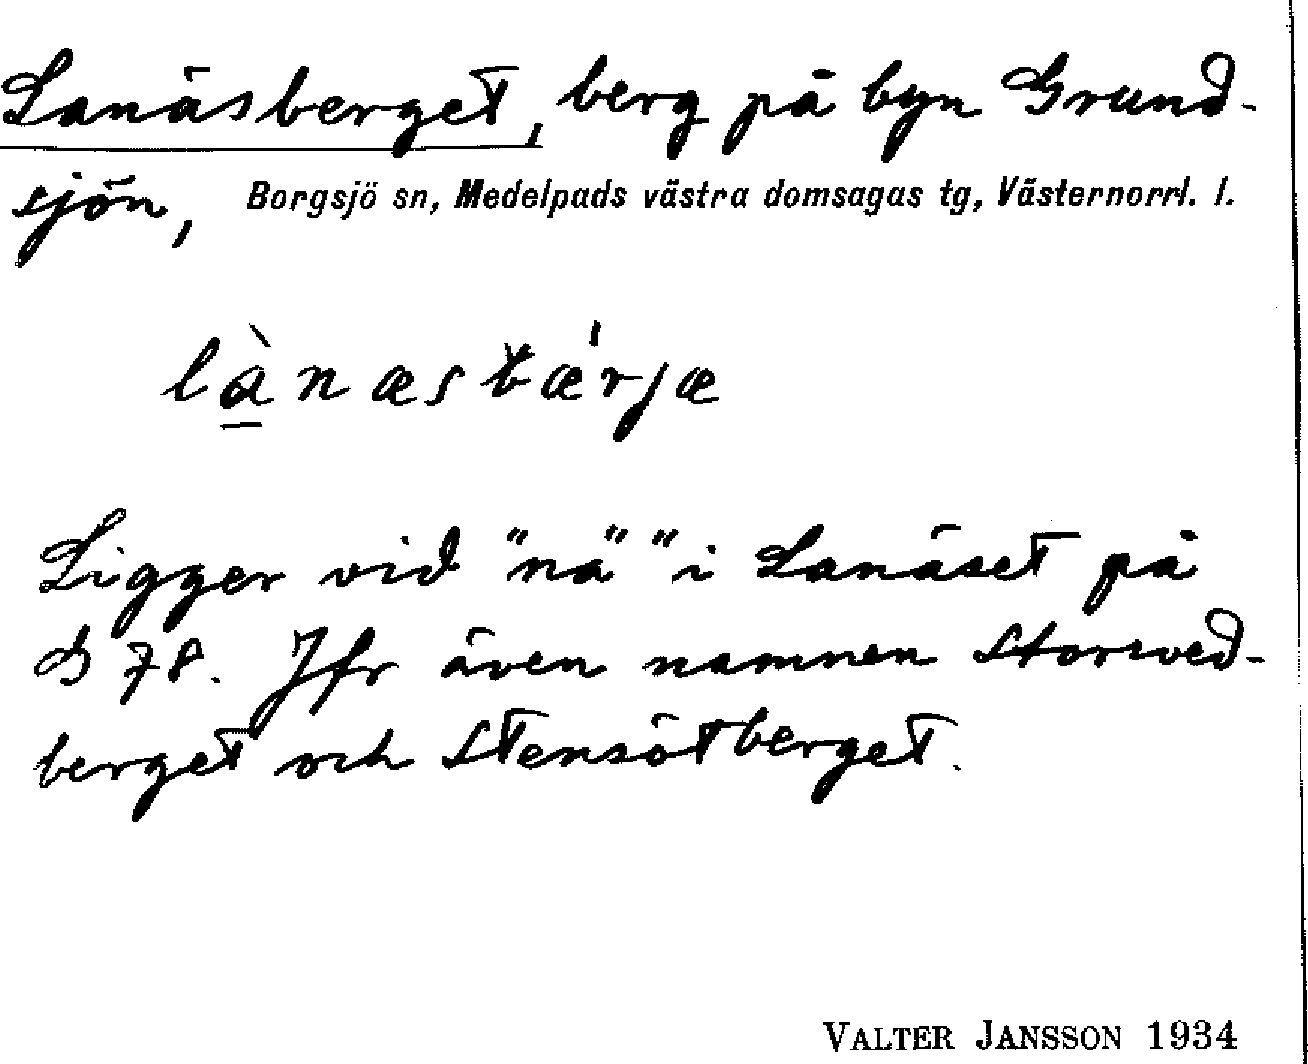 Lanäsberget, berg på byn Grund-
sjön, Borgsjö sn, Medelpads västra domsagas tg, Västernorrl. l.
là̱næsbǽrjæ
Ligger vid "nä" "i Lanäset på
B 78. Jfr även namnen Storsved-
berget och Stensötberget.
VALTER JANSSON 1934